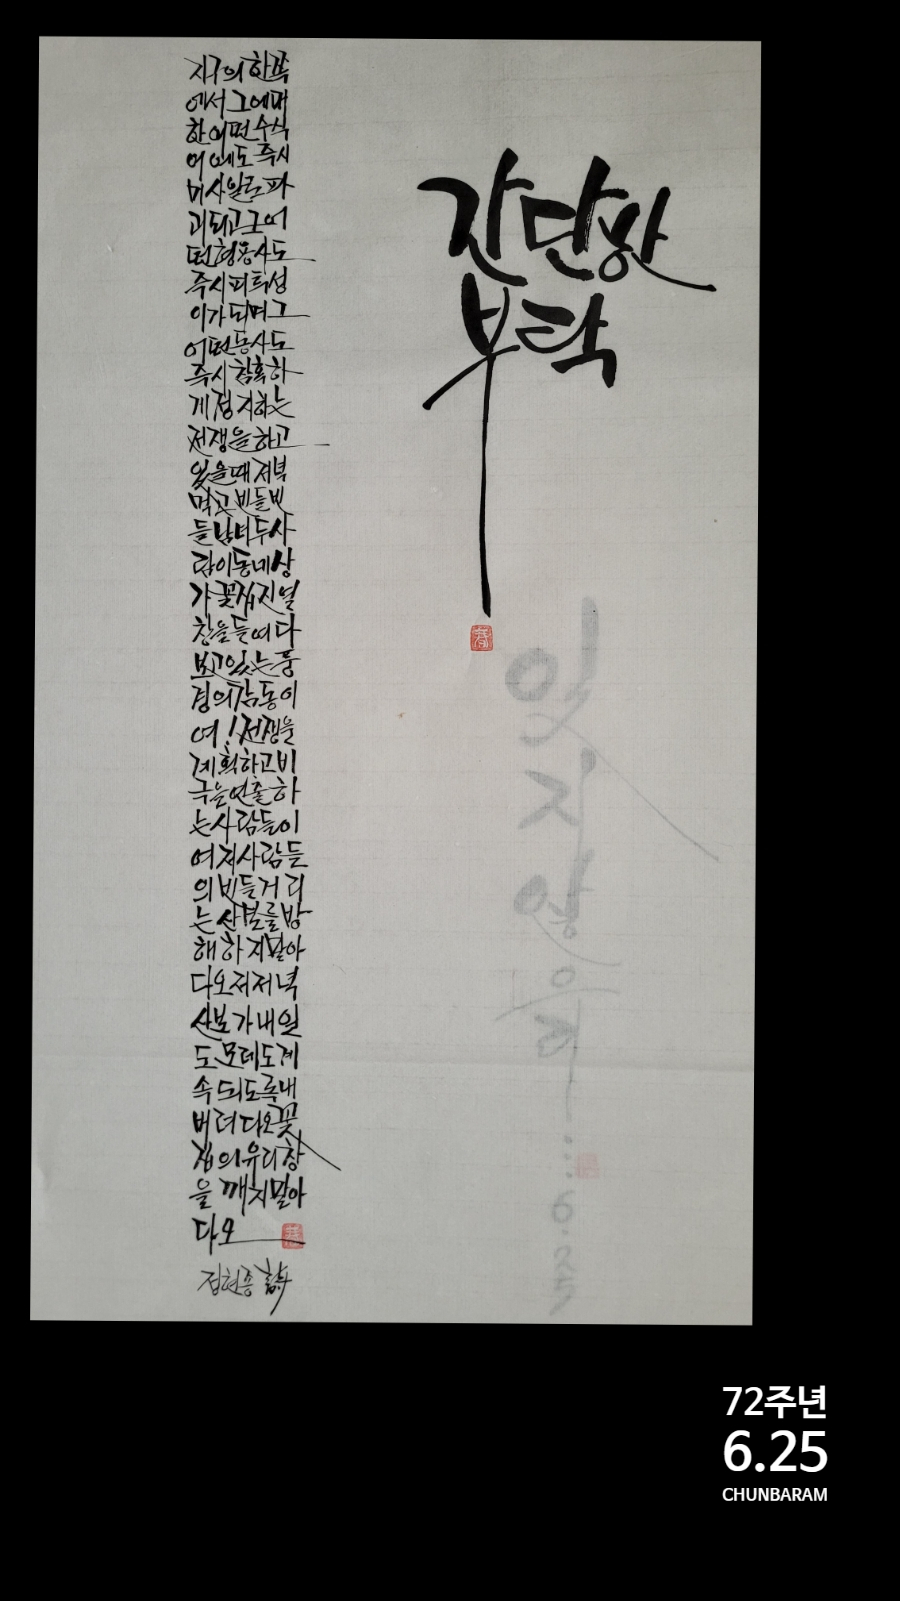 간단한
부탁
지구의 한쪽
에서 그에 대
한 어떤 수식
어에도 즉시
미사일로 파
괴되고 그 어
떤 형용사도
즉시 피투성
이가 되며 그
어떤 동사도
즉시 참혹하
게 정지하는
전쟁을 하고
있을 때 저녁
먹고 빈들빈
들 남녀 두 사
람이 동네 상
가 꽃집 진열
창을 들여다
보고 있는 풍
경의 감동이
여! 전쟁을
계획하고 비
극을 연출하
는 사람들이
여 저 사람들
의 빈들거리
는 산보를 방
해하지 말아
다오 저 저녁
산보가 내일
도 모레도 계
속되도록 내
버려다오 꽃
집의 유리창
을 깨지 말아
다오
정현종 詩
72주년
6.25
CHUNBARAM